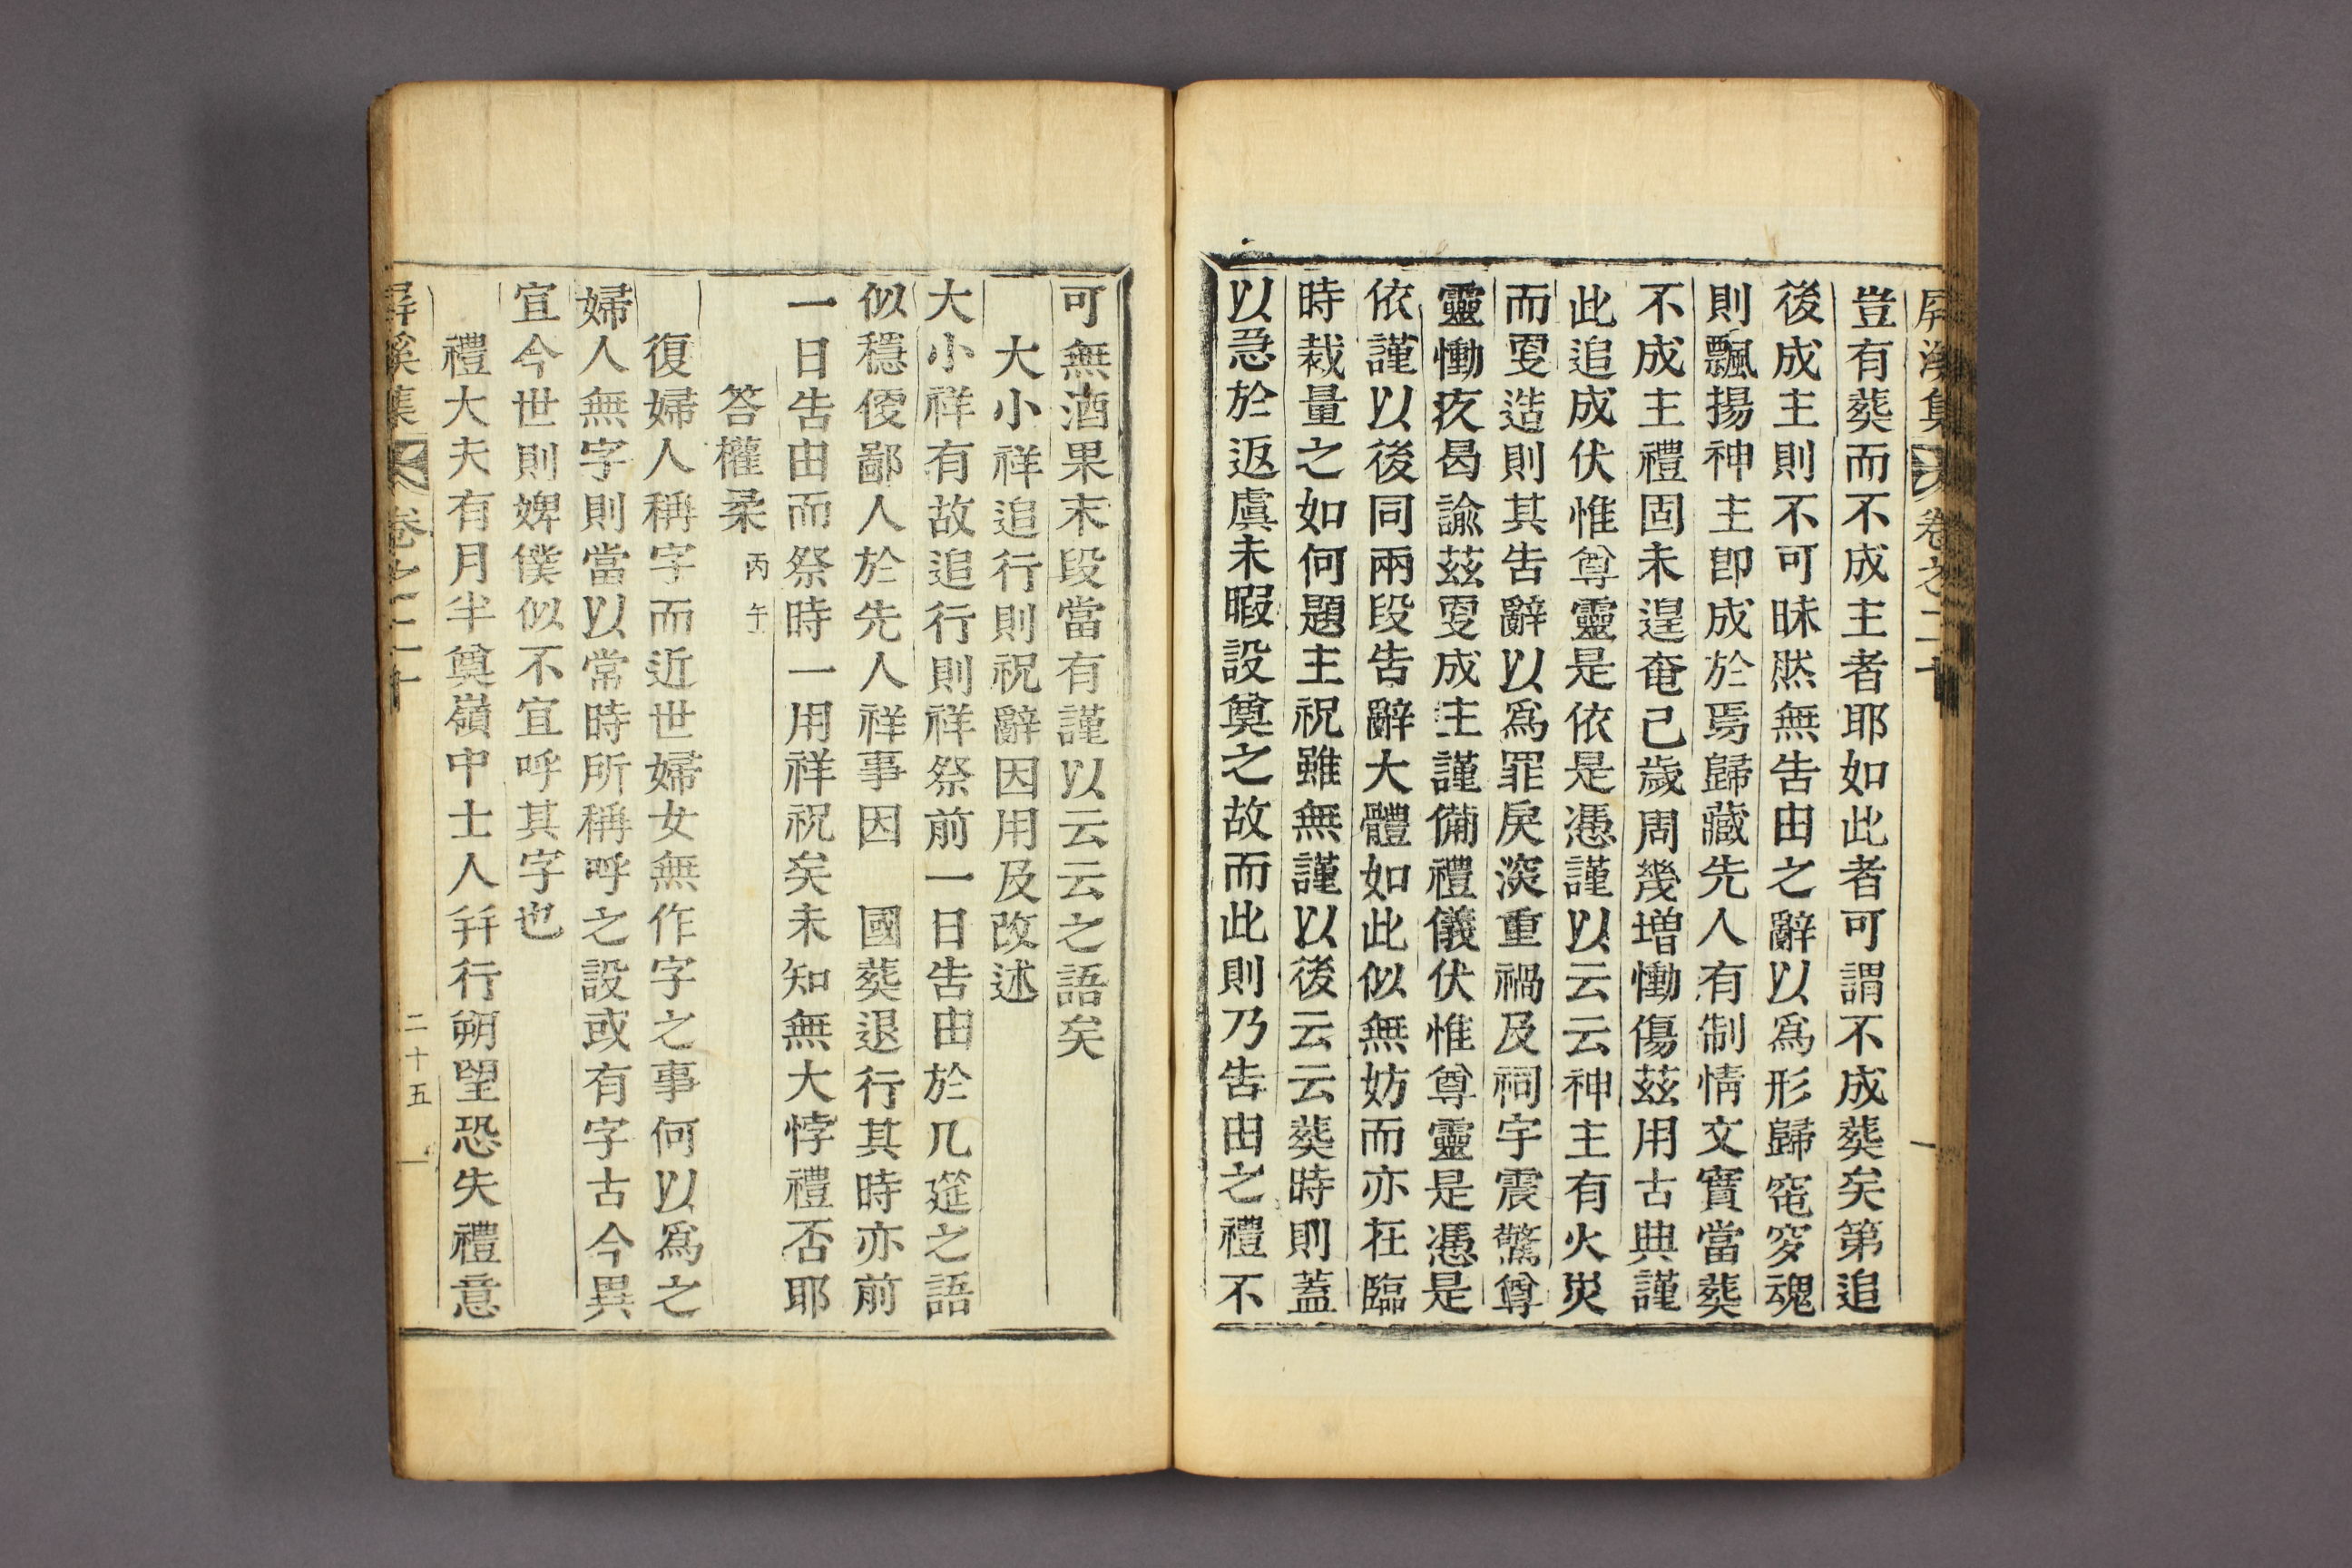 屏溪集 卷之二十
豈有葬而不成主者耶如此者可謂不成葬矣第追
後成主則不可昧然無告由之辭以爲形歸窀穸魂
則飄揚神主卽成於焉歸藏先人有制情文實當葬
不成主禮固未遑奄己歲周幾增慟傷玆用古典謹
此追成伏惟尊靈是依是憑謹以云云神主有火災
而更造則其告辭以爲罪戾深重禍及祠宇震驚尊
靈慟疚曷諭玆更成主謹備禮儀伏惟尊靈是憑是
依謹以後同兩段告辭大體如此似無妨而亦在臨
時裁量之如何題主祝雖無謹以後云云葬時則蓋
以急於返虞未暇設奠之故而此則乃告由之禮不
可無酒果末段當有謹以云云之語矣
大小祥追行則祝辭因用及改述
大小祥有故追行則祥祭前一日告由於几筵之語
似穩便鄙人於先人祥事因 國葬退行其時亦前
一日告由而祭時一用祥祝矣未知無大悖禮否耶
答權柔 丙午
復婦人稱字而近世婦女無作字之事何以爲之
婦人無字則當以常時所稱呼之設或有字古今異
宜今世則婢僕似不宜呼其字也
禮大夫有月半奠嶺中士人并行朔望恐失禮意
屏溪集 卷之二十 二十五